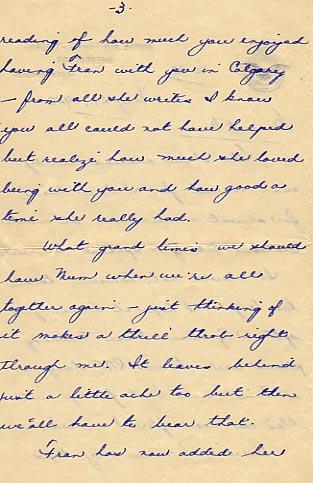 -3-
reading of how much you enjoyed
having Fran with you in Calgary
- from all she writes I know
you all could not have helped
but realize how much she loved
being with you and how good a
time she really had.
What grand times we should
have Mum when we're all
together again - just thinking of
it makes a thrill throb right
through me. It leaves behind
just a little ache too but then
we all have to bear that.
Fran has now added her